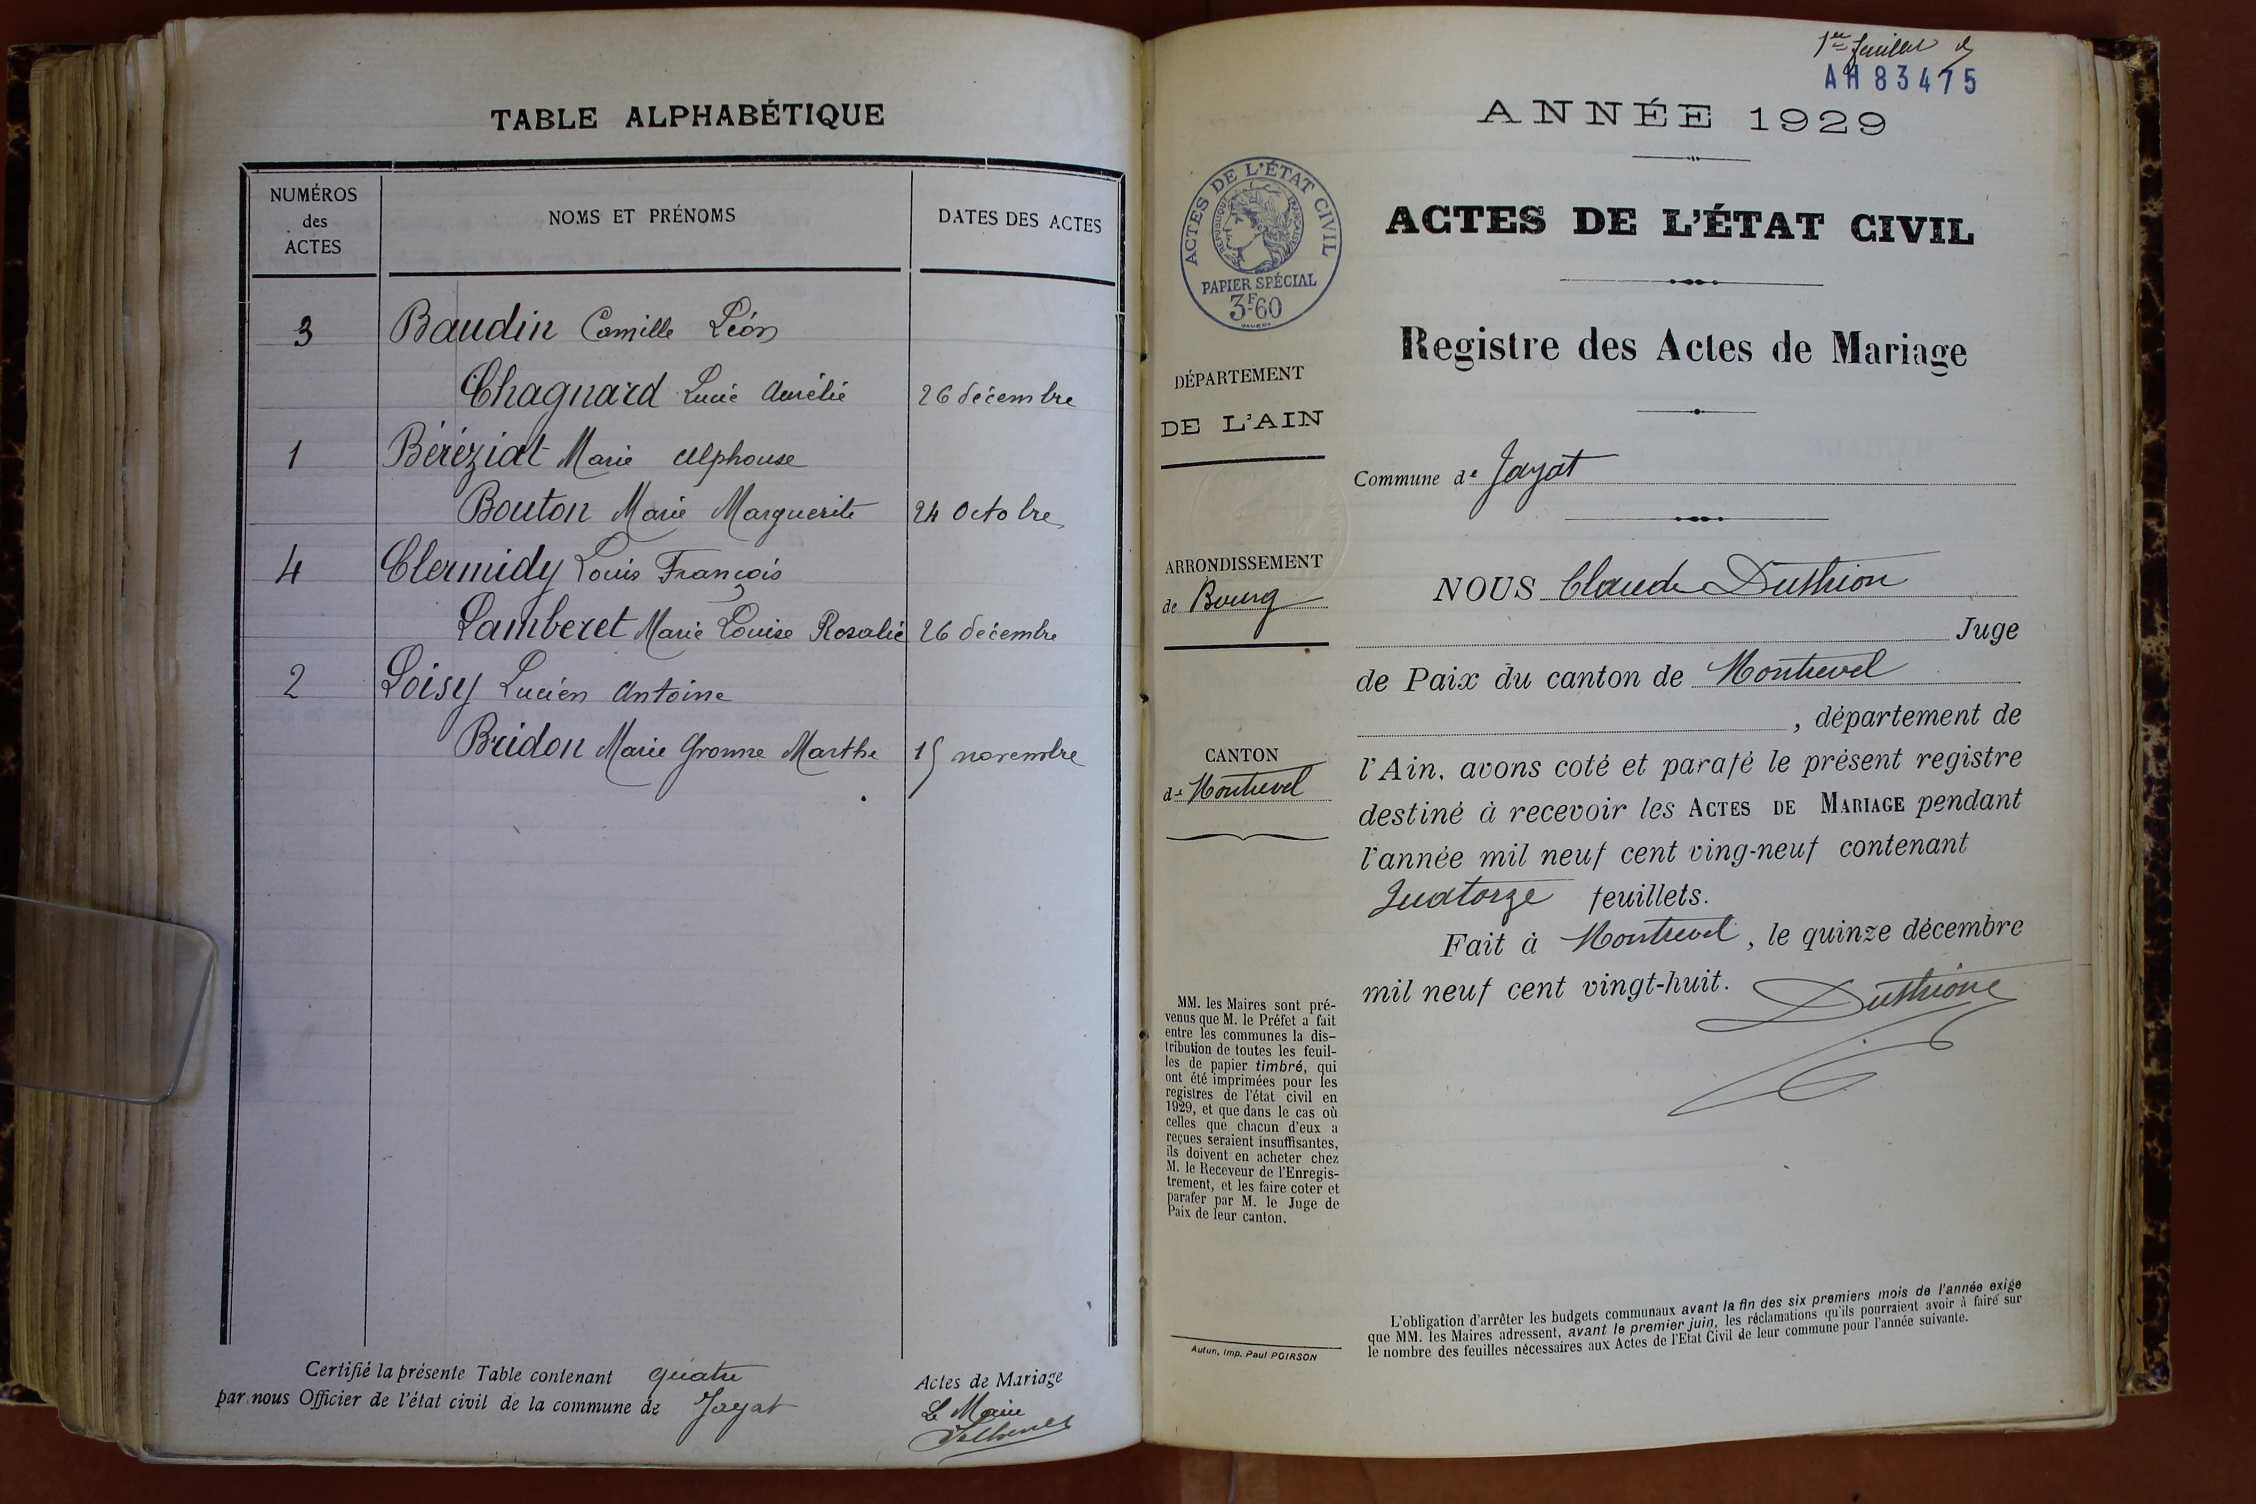 TABLE ALPHABÉTIQUE
NUMÉROS
des
ACTES
NOMS ET PRÉNOMS
DATES DES ACTES
3 Baudin Camille Léon
Chagnard Lucie Aurélie 26 décembre
1 Béréziat Marie Alphonse
Bouton Marie Marguerite 24 Octobre
4 Clermidy Louis François
Lamberet Marie Louise Rosalie 26 décembre
2 Loisy Lucien Antoine
Bridon Marie Yvonne Marthe 15 novembre
Certifié la présente Table contenant quatre Actes de Mariage
par nous Officier de l'état civil de la commune de Jayat
Le Maire
1er feuillet
AH83475
ANNÉE 1929
ACTES DE L'ÉTAT CIVIL
RÉPUBLIQUE FRANÇAISE
PAPIER SPÉCIAL
3F60
ACTES DE L'ÉTAT CIVIL
Registre des Actes de Mariage
DÉPARTEMENT
DE L'AIN
Commune de Jayat
ARRONDISSEMENT
de Bourg
CANTON
de Montrevel
NOUS Claude Duthion
Juge
de Paix du canton de Montrevel
, département de
l'Ain, avons coté et parafé le présent registre
destiné à recevoir les ACTES DE MARIAGE pendant
l'année mil neuf cent ving-neuf contenant
Quatorze feuillets.
Fait à Montrevel, le quinze décembre
mil neuf cent vingt-huit.
Duthion
MM. les Maires sont pré-
venus que M. le Préfet a fait
entre les communes la dis-
tribution de toutes les feuil-
les de papier timbré, qui
ont été imprimées pour les
registres de l'état civil en
1929, et que dans le cas où
celles que chacun d'eux a
reçues seraient insuffisantes,
ils doivent en acheter chez
M. le Receveur de l'Enregis-
trement, et les faire coter et
parafer par M. le Juge de
Paix de leur canton.
Autun, Imp. Paul POIRSON
L'obligation d'arrêter les budgets communaux avant la fin des six premiers mois de l'année exige
que MM. les Maires adressent, avant le premier juin, les réclamations qu'ils pourraient avoir à faire sur
le nombre des feuilles nécessaires aux Actes de l'Etat Civil de leur commune pour l'année suivante.